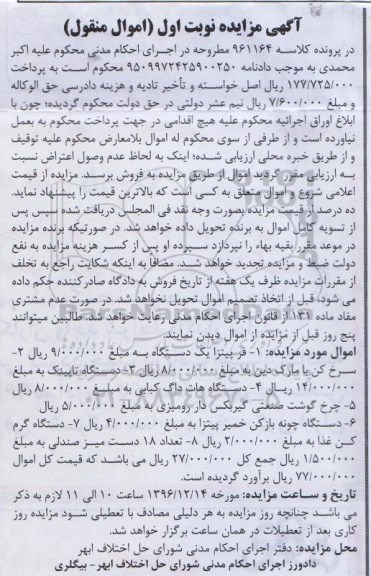 آگهی مزایده نوبت اول (اموال منقول)
در پرونده کلاسه ۹۶۱۱۶۴ مطروحه در اجرای احکام مدنی محکوم علیه اکبر
محمدی به موجب دادنامه ۹۵۰۹۹۷۲۴۲۵۹۰۰۲۵۰ محکوم است به پرداخت
۱۷۷/۷۲۵/۰۰۰ ریال اصل خواسته و تأخیر تادیه و هزینه دادرسی حق الوکاله
و مبلغ ۷/۶۰۰/۰۰۰ ریال نیم عشر دولتی در حق دولت محکوم گردیده؛ چون با
ابلاغ اوراق اجرائیه محکوم علیه هیچ اقدامی در جهت پرداخت محکوم به بعمل
نیاورده است و از طرفی از سوی محکوم له اموال بلامعارض محکوم علیه توقیف
و از طریق خبره محلی ارزیابی شده؛ اینک به لحاظ عدم وصول اعتراض نسبت
به ارزیابی مقرر گردید اموال از طریق مزایده به فروش برسد. مزایده از قیمت
اعلامی شروع و اموال متعلق به کسی است که بالاترین قیمت را پیشنهاد نماید.
ده درصد از قیمت مزایده بصورت وجه نقد فی المجلس دریافت شده سپس پس
از تسویه کامل اموال به برنده تحویل داده خواهد شد. در صورتیکه برنده مزایده
در موعد مقرر بقیه بهاء را نپردازد سپرده او پس از کسر هزینه مزایده به نفع
دولت ضبط و مزایده تجدید خواهد شد. مضافاً به اینکه شکایت راجع به تخلف
از مقررات مزایده ظرف یک هفته از تاریخ فروش به دادگاه صادرکننده حکم داده
می شود، قبل از اتخاذ تصمیم اموال تحویل نخواهد شد. در صورت عدم مشتری
مفاد ماده ۱۳۱ از قانون اجرای احکام مدنی رعایت خواهد شد. طالبین میتوانند
پنج روز قبل از مزایده از اموال دیدن نمایند.
اموال مورد مزایده: ۱- فر پیتزا یک دستگاه به مبلغ ۹/۰۰۰/۰۰۰ ریال ۲-
سرخ کن با مارک دین به مبلغ ۸/۰۰۰/۰۰۰ ریال ۳- دستگاه تاپینک به مبلغ
۱۴/۰۰۰/۰۰۰ ریال ۴- دستگاه هات داگ کبابی به مبلغ ۸/۰۰۰/۰۰۰ ریال
۵- چرخ گوشت صنعتی گیربکس دار رومیزی به مبلغ ۵/۰۰۰/۰۰۰ ریال
۶- دستگاه چونه بازکن خمیر پیتزا به مبلغ ۴/۰۰۰/۰۰۰ ریال ۷- دستگاه گرم
کن غذا به مبلغ ۲/۰۰۰/۰۰۰ ریال ۸- تعداد ۱۸ دست میز صندلی به مبلغ
۱/۵۰۰/۰۰۰ ریال جمع کل ۲۷/۰۰۰/۰۰۰ ریال می باشد که قیمت کل اموال
۷۷/۰۰۰/۰۰۰ ریال برآورد گردیده است.
تاریخ و ساعت مزایده: مورخه ۱۳۹۶/۱۲/۱۴ ساعت ۱۰ الی ۱۱ لازم به ذکر
می باشد چنانچه روز مزایده به هر دلیلی مصادف با تعطیلی شود مزایده روز
کاری بعد از تعطیلات در همان ساعت برگزار خواهد شد.
محل مزایده: دفتر اجرای احکام مدنی شورای حل اختلاف ابهر
دادورز اجرای احکام مدنی شورای حل اختلاف ابهر- بیگلری